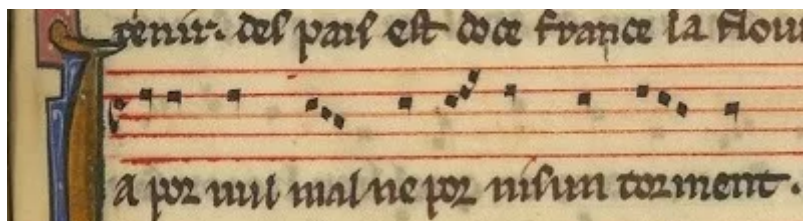 tenir. del païs est doce france la flou
a por nul mal ne por nisun torment.